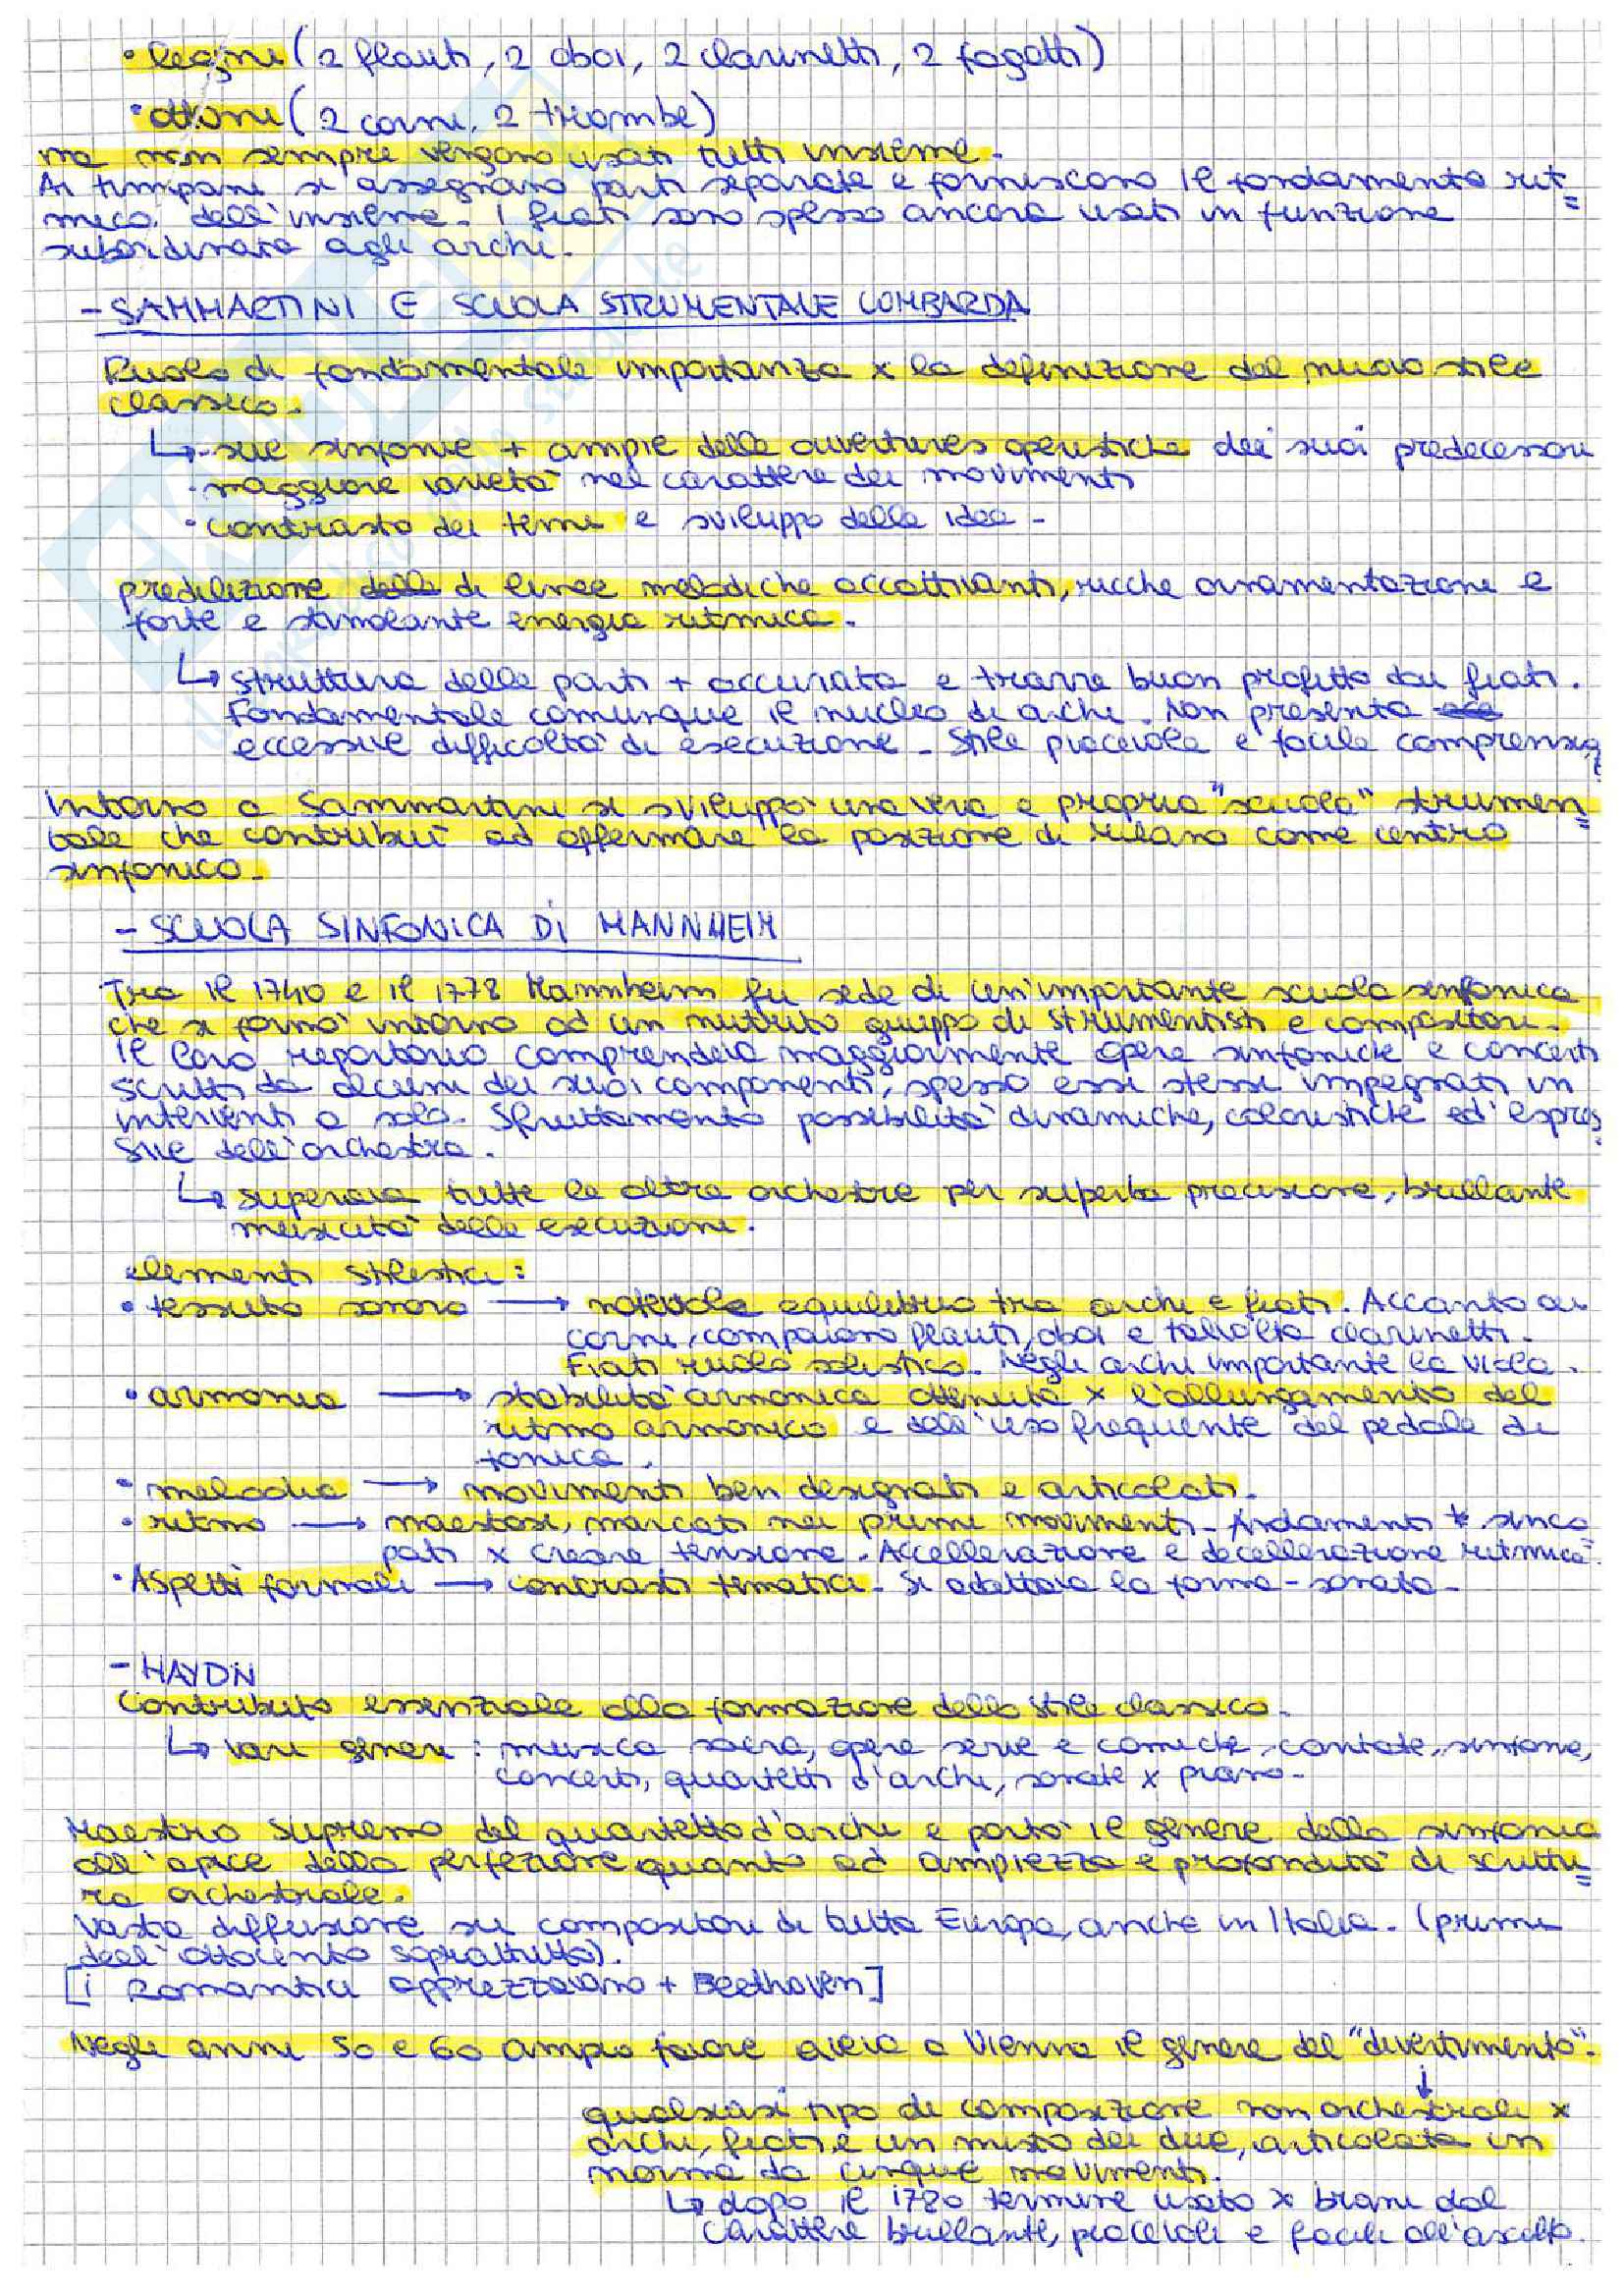 • legni (2 flauti, 2 oboi, 2 clarinetti, 2 fagotti)
• ottoni (2 corni, 2 trombe)
ma non sempre vengono usati tutti insieme.
Ai timpani si assegnano parti separate e forniscono il fondamento rit=
mico dell'insieme. I fiati sono spesso ancora usati in funzione
subordinata agli archi.
- SAMMARTINI E SCUOLA STRUMENTALE LOMBARDA
Ruolo di fondamentale importanza x la definizione del nuovo stile
classico.
↳ - sue sinfonie + ampie delle ouvertures operistiche dei suoi predecessori
• maggiore varietà nel carattere dei movimenti
• contrasto dei temi e sviluppo delle idee -
predilezione delle di linee melodiche accattivanti, ricche ornamentazioni e
forte e stimolante energia ritmica.
↳ struttura delle parti + accurata e trarre buon profitto dai fiati.
Fondamentale comunque il nucleo di archi. Non presenta
eccessive difficoltà di esecuzione - Stile piacevole e facile comprensio
Intorno a Sammartini si sviluppò una vera e propria "scuola" strumen=
tale che contribuì ad affermare la posizione di Milano come centro
sinfonico -
- SCUOLA SINFONICA DI MANNHEIM
Tra il 1740 e il 1778 Mannheim fu sede di un'importante scuola sinfonica
che si formò intorno ad un nutrito gruppo di strumentisti e compositori.
Il loro repertorio comprendeva maggiormente opere sinfoniche e concerti
scritti da alcuni dei suoi componenti, spesso essi stessi impegnati in
interventi a solo. Sfruttamento possibilità dinamiche, coloristiche ed espres
sive dell'orchestra.
↳ superava tutte le altre orchestre per superba precisione, brillante
delle esecuzioni.
elementi stilistici:
• tessuto sonoro → notevole equilibrio tra archi e fiati. Accanto ai
corni, compaiono flauti, oboi e talvolta clarinetti.
Fiati ruolo solistico. Negli archi importante la viola.
• armonia → stabilità armonica ottenuta x l'allungamento del
ritmo armonico e dall'uso frequente del pedale di
tonica.
• melodia → movimenti ben disegnati e articolati.
• ritmo → maestosi, marcati nei primi movimenti - Andamenti sinco
pati x creare tensione. Accellerazione e decellerazione ritmica.
• Aspetti formali → contrasti tematici - Si adottava la forma - sonata -
- HAYDN
Contributo essenziale alla formazione dello stile classico.
↳ vari generi: musica sacra, opere serie e comiche, cantate, sinfonie,
concerti, quartetti d'archi, sonate x piano -
Maestro supremo del quartetto d'archi e portò il genere della sinfonia
all'apice della perfezione quanto ad ampiezza e profondità di scrittu=
ra orchestrale.
Vasta diffusione su compositori di tutta Europa, anche in Italia. (primi
dell'ottocento soprattutto).
[i Romantici apprezzavano + Beethoven]
Negli anni 50 e 60 ampio favore aveva a Vienna il genere del "divertimento".
↓
qualsiasi tipo di composizione non orchestrale x
archi, fiati e un misto dei due, articolata in
norma da cinque movimenti.
↳ dopo il 1780 termine usato x brani dal
carattere brillante, piacevoli e facili all'ascolto.